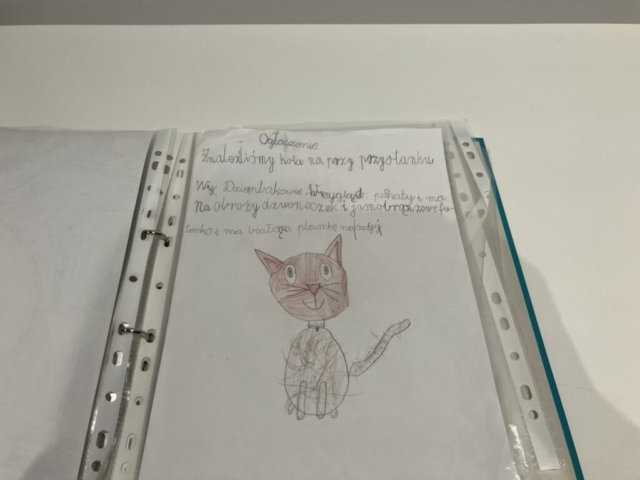 Ogłoszenie
Znaleźliśmy kota na przy przystanku
Wy Dziombakowie. Wygląd: puchaty i ma
na obroży dzwoneczek i jasnobrązowe fu-
terko i ma białą plamkę